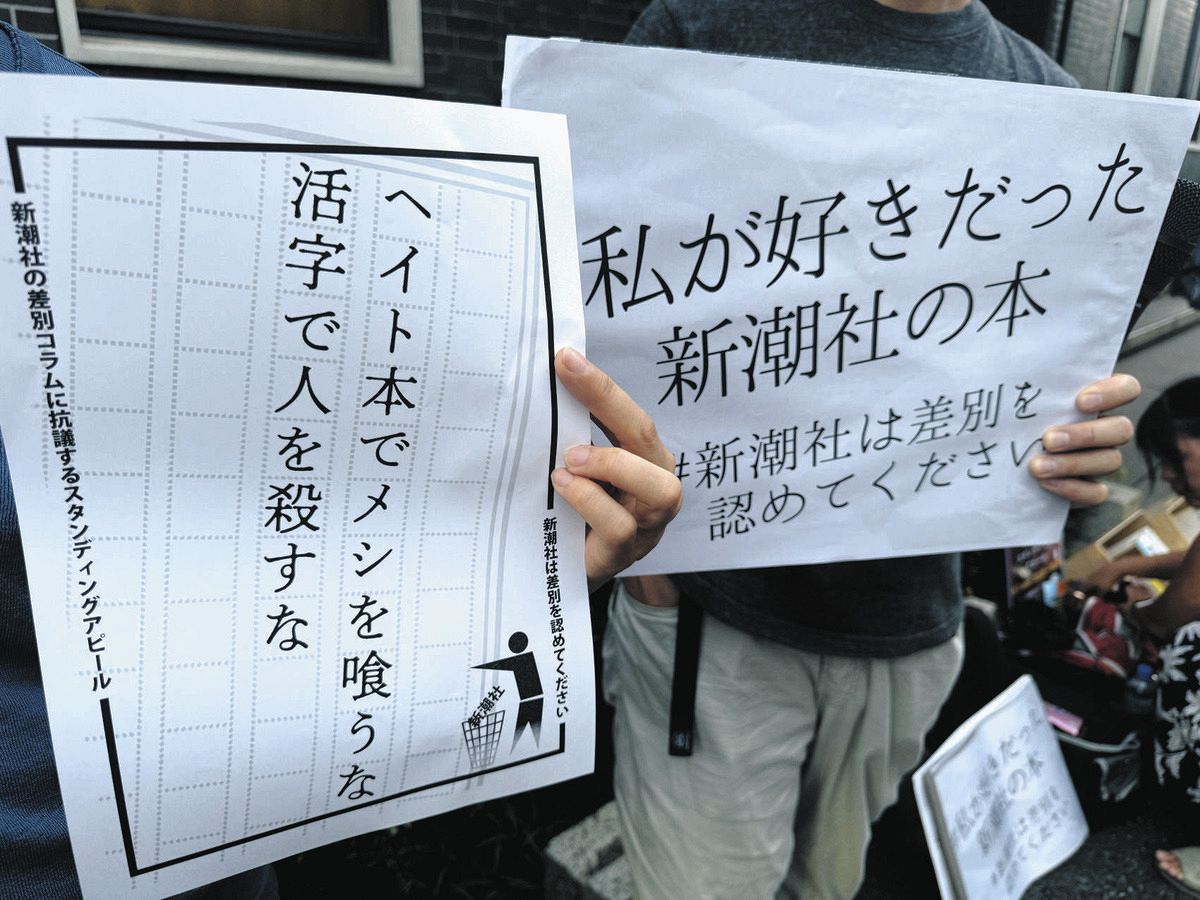 ヘイト本でメシを喰うな
活字で人を殺すな
新潮社の差別コラムに抗議するスタンディングアピール
新潮社は差別を認めてください
新潮社
私が好きだった
新潮社の本
#新潮社は差別を
認めてください